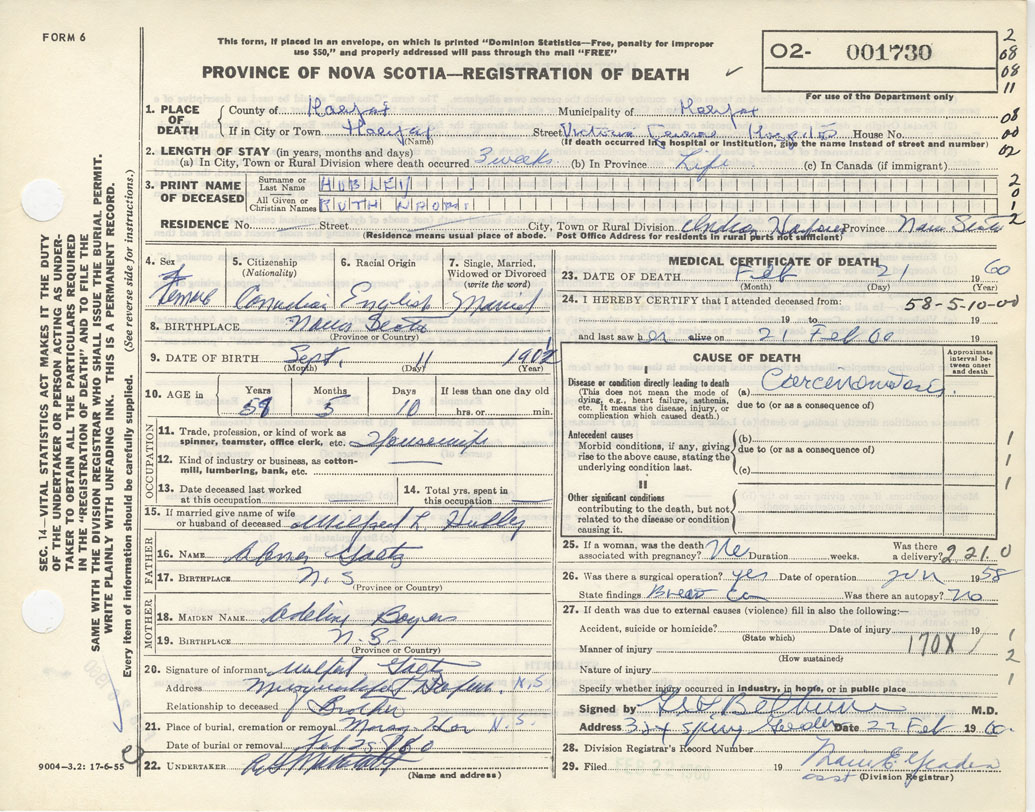 FORM 6
This form, if placed in an envelope, on which is printed "Dominion Statistics—Free, penalty for improper
use $50," and properly addressed will pass through the mail "FREE"
PROVINCE OF NOVA SCOTIA—REGISTRATION OF DEATH
O2- 001730
For use of the Department only
2
08
08
11
08
00
02
2
0
1
2
SEC. 14—VITAL STATISTICS ACT MAKES IT THE DUTY
OF THE UNDERTAKER OR PERSON ACTING AS UNDER-
TAKER TO OBTAIN ALL THE PARTICULARS REQUIRED
IN THE "REGISTRATION OF DEATH" AND TO FILE THE
SAME WITH THE DIVISION REGISTRAR WHO SHALL ISSUE THE BURIAL PERMIT.
WRITE PLAINLY WITH UNFADING INK. THIS IS A PERMANENT RECORD.
Every item of information should be carefully supplied. (See reverse side for instructions.)
1. PLACE OF DEATH
County of Halifax Municipality of Halifax
If in City or Town Halifax Street Victoria General Hospital House No.
(Name) (If death occurred in hospital or institution, give the name instead of street and number)
2. LENGTH OF STAY (in years, months and days)
(a) In City, Town or Rural Division where death occurred 3 weeks (b) In Province Life (c) In Canada (if immigrant)
3. PRINT NAME OF DECEASED
Surname or Last Name HUBLEY
All Given or Christian Names RUTH NAOMI
RESIDENCE No. Street City, Town or Rural Division Indian Harbour Province Nova Scotia
(Residence means usual place of abode. Post Office Address for residents in rural parts not sufficient)
4. Sex Female
5. Citizenship (Nationality) Canadian
6. Racial Origin English
7. Single, Married, Widowed or Divorced (write the word) Married
8. BIRTHPLACE Nova Scotia
(Province or Country)
9. DATE OF BIRTH Sept. 11 1901
(Month) (Day) (Year)
10. AGE in Years 58 Months 5 Days 10 If less than one day old hrs. or min.
OCCUPATION
11. Trade, profession or kind of work as spinner, teamster, office clerk, etc. Housewife
12. Kind of industry or business, as cotton-mill, lumbering, bank, etc.
13. Date deceased last worked at this occupation
14. Total yrs. spent in this occupation
15. If married give name of wife or husband of deceased Milfred L. Hubley
FATHER
16. NAME Abner Gaetz
17. BIRTHPLACE N.S
(Province or Country)
MOTHER
18. MAIDEN NAME Adeline
19. BIRTHPLACE N.S.
(Province or Country)
20. Signature of informant Gaetz
Address Musquodoboit Harbour N.S
Relationship to deceased Brother
21. Place of burial, cremation or removal N.S.
Date of burial or removal Feb 25/60
22. UNDERTAKER
(Name and address)
9004—3.2: 17-6-55
MEDICAL CERTIFICATE OF DEATH
23. DATE OF DEATH Feb 21 1960
(Month) (Day)
24. I HEREBY CERTIFY that I attended deceased from: 58-5-10-00
19 to 19
and last saw her alive on 21 Feb 60 19
CAUSE OF DEATH
Approximate interval between onset and death
I
Disease or condition directly leading to death
(This does not mean the mode of dying, e.g., heart failure, asthenia, etc. It means the disease, injury, or complication which caused death.)
(a) Carcinomatosis
due to (or as a consequence of)
Antecedent causes
Morbid conditions, if any, giving rise to the above cause, stating the underlying condition last.
(b)
due to (or as a consequence of)
(c)
II
Other significant conditions
contributing to the death, but not related to the disease or condition causing it.
1
1
1
25. If a woman, was the death associated with pregnancy? No Duration weeks. Was there a delivery? 2 21.0
26. Was there a surgical operation? yes Date of operation Jun 1958
State findings Breast Ca Was there an autopsy? No
27. If death was due to external causes (violence) fill in also the following:—
Accident, suicide or homicide? Date of injury 19
(State which)
Manner of injury 170X
(How sustained)
Nature of injury
1
2
1
Specify whether injury occurred in industry, in home, or in public place
Signed by Bethune M.D.
Address 314 Spring Garden Date 22 Feb 1960.
28. Division Registrar's Record Number
29. Filed FEB 22 1960 19
asst (Division Registrar)